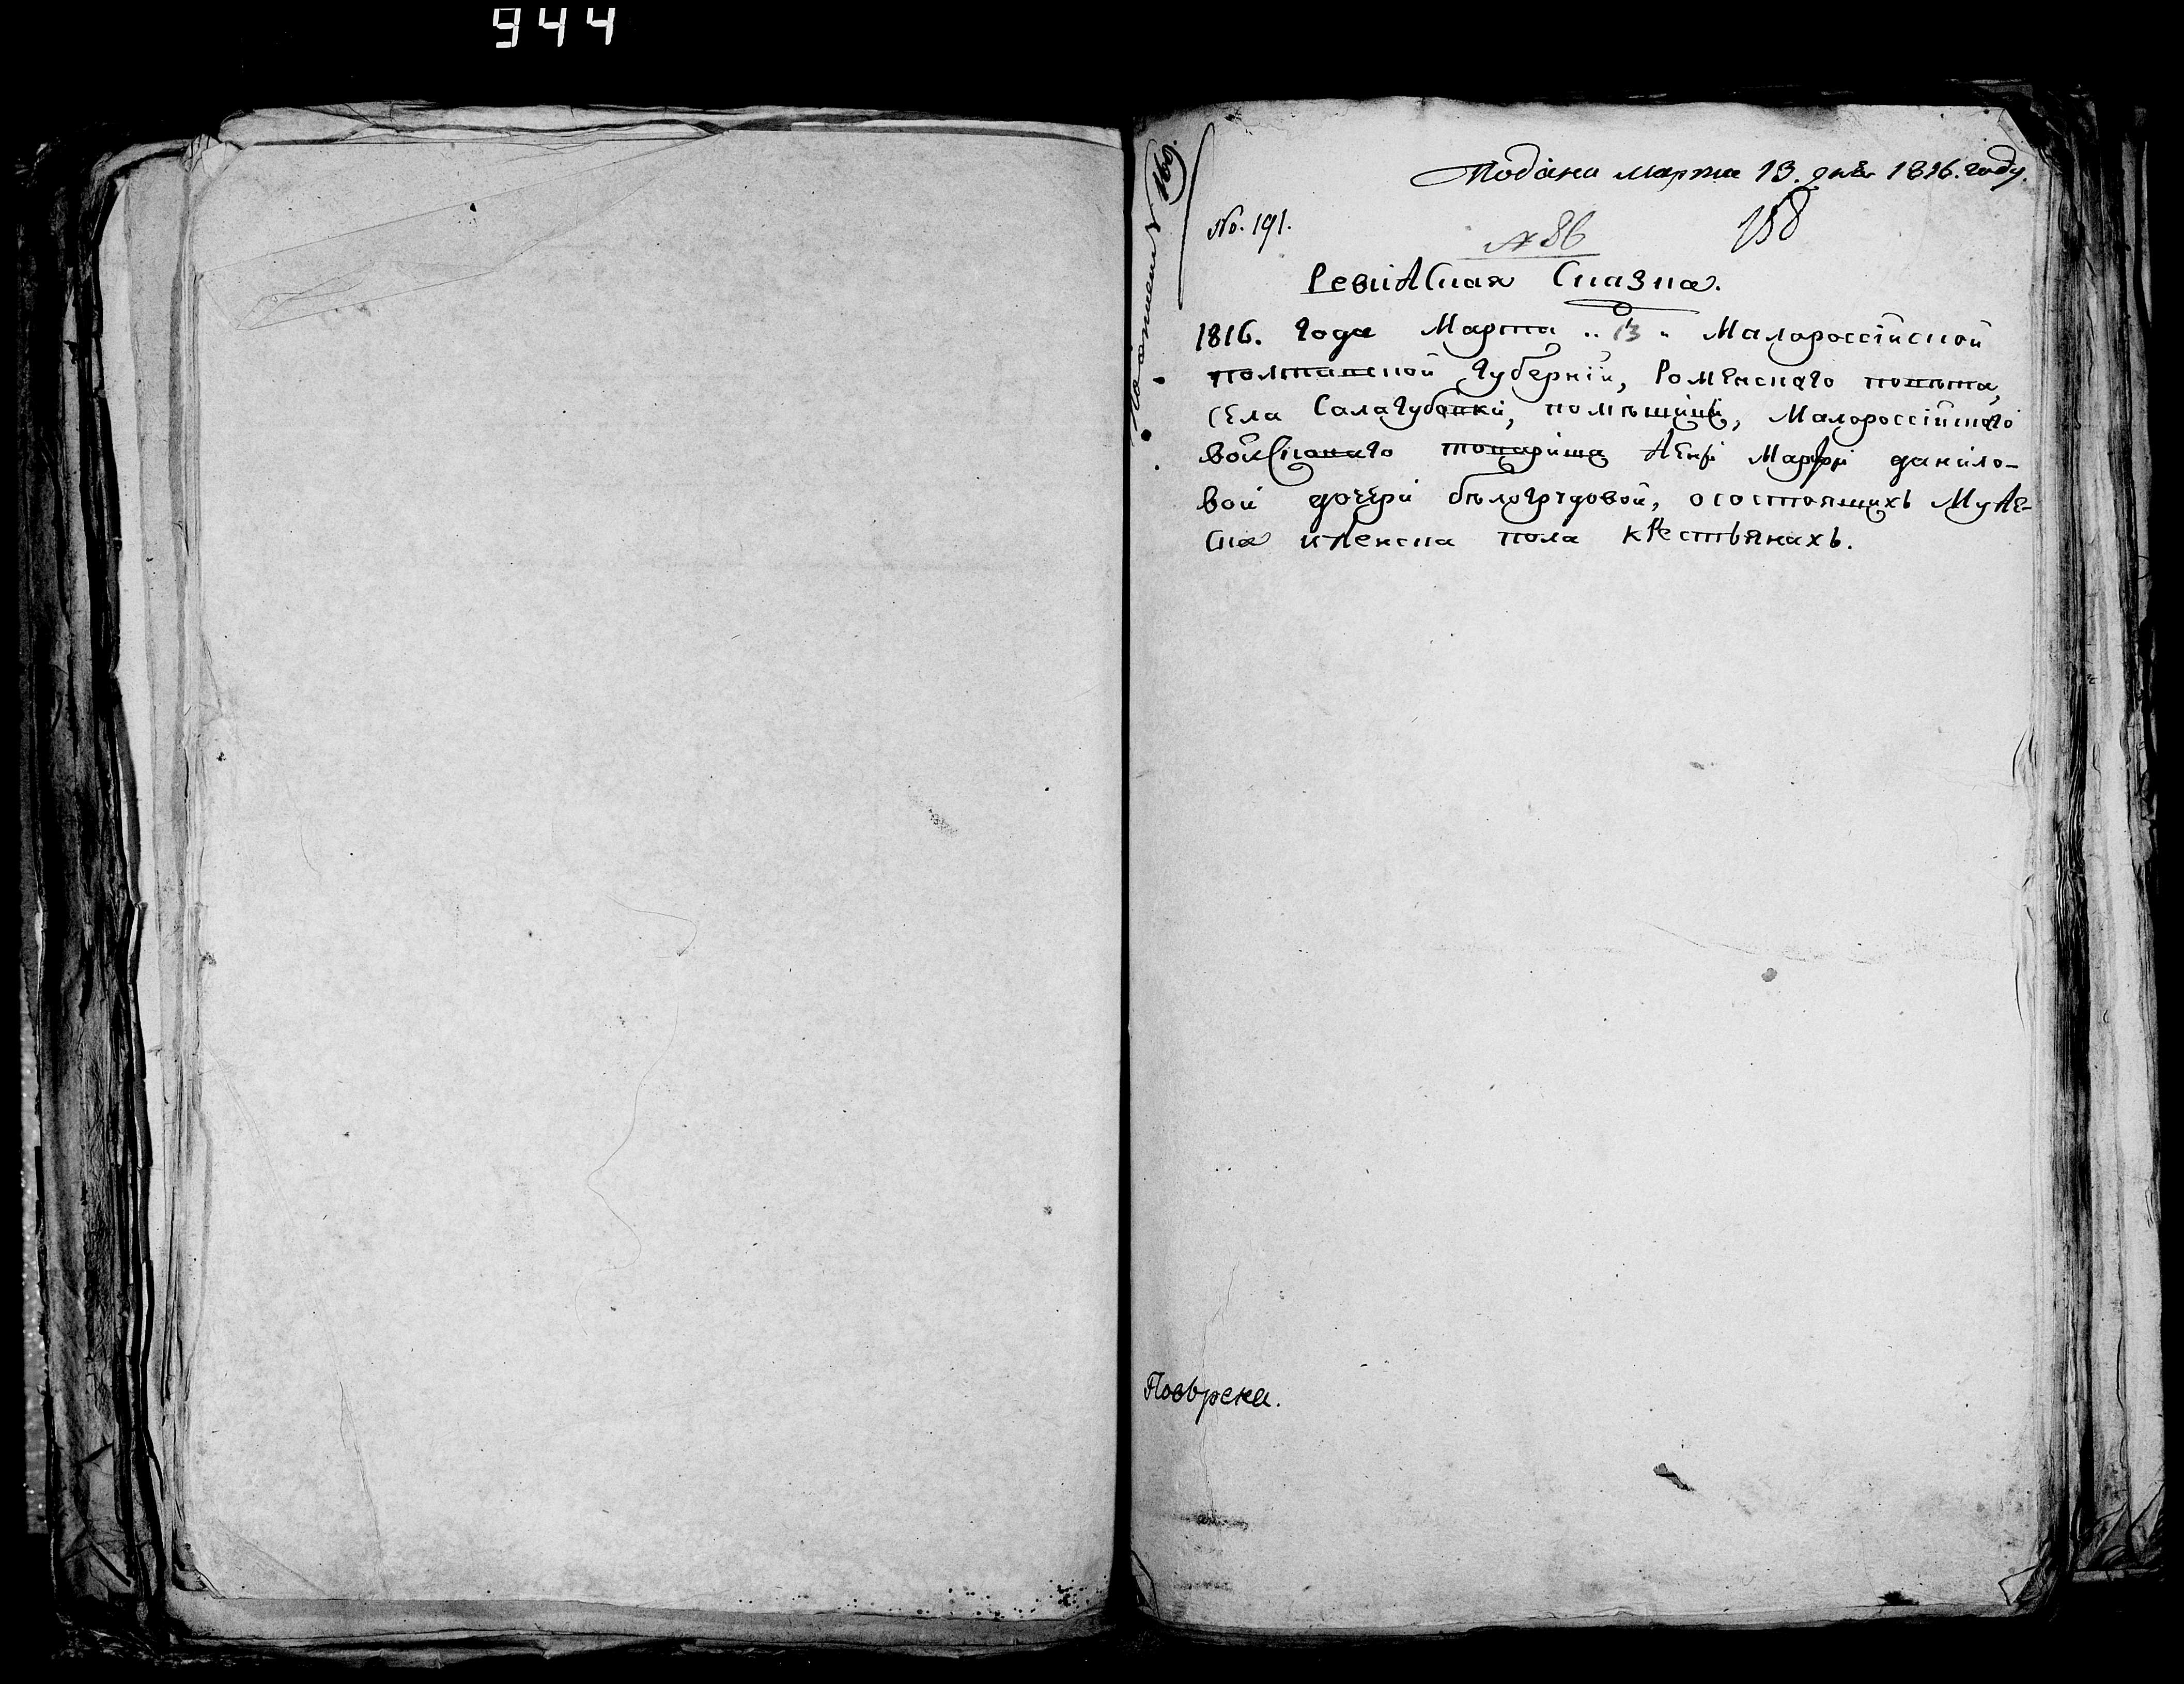 944
160.
Подана марта 13. дня 1816. году.
No. 191.
№ 86
158
Ревижская Сказка.
1816. Года Марта .. 13 .. Малороссійской
полтавской Губерніи, Роменского повѣта,
Села Салагубовки, помѣщицѣ, Малороссійского
войскового товарища Женѣ Марфѣ данило-
вой дочери бѣлогрудовой, осостоящихъ Муже-
ска иженска пола крестьянахъ.
Повѣрена.